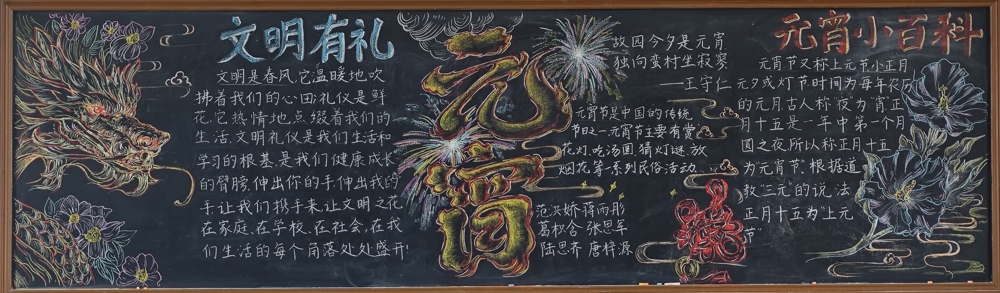 文明有礼
文明是春风,它温暖地吹
拂着我们的心田;礼仪是鲜
花,它热情地点缀着我们的
生活.文明礼仪是我们生活和
学习的根基.是我们健康成长
的臂膀.伸出你的手,伸出我的
手,让我们携手来,让文明之花
在家庭.在学校.在社会.在我
们生活的每个角落处处盛开!
元宵
故园今夕是元宵
独向蛮村坐寂寥
——王守仁
元宵节是中国的传统
节日之一元宵节主要有赏
花灯.吃汤圆.猜灯谜.放
烟花等系列民俗活动.
范洪娇 蒋雨彤
葛权含 张思军
陆思齐 唐梓源
元宵小百科
元宵节又称上元节小正月
元夕或灯节时间为每年农历
的元月古人称"夜"为"宵"正
月十五是一年中第一个月
圆之夜所以称正月十五
为元宵节.根据道
教"三元"的说法
正月十五为"上元
节"